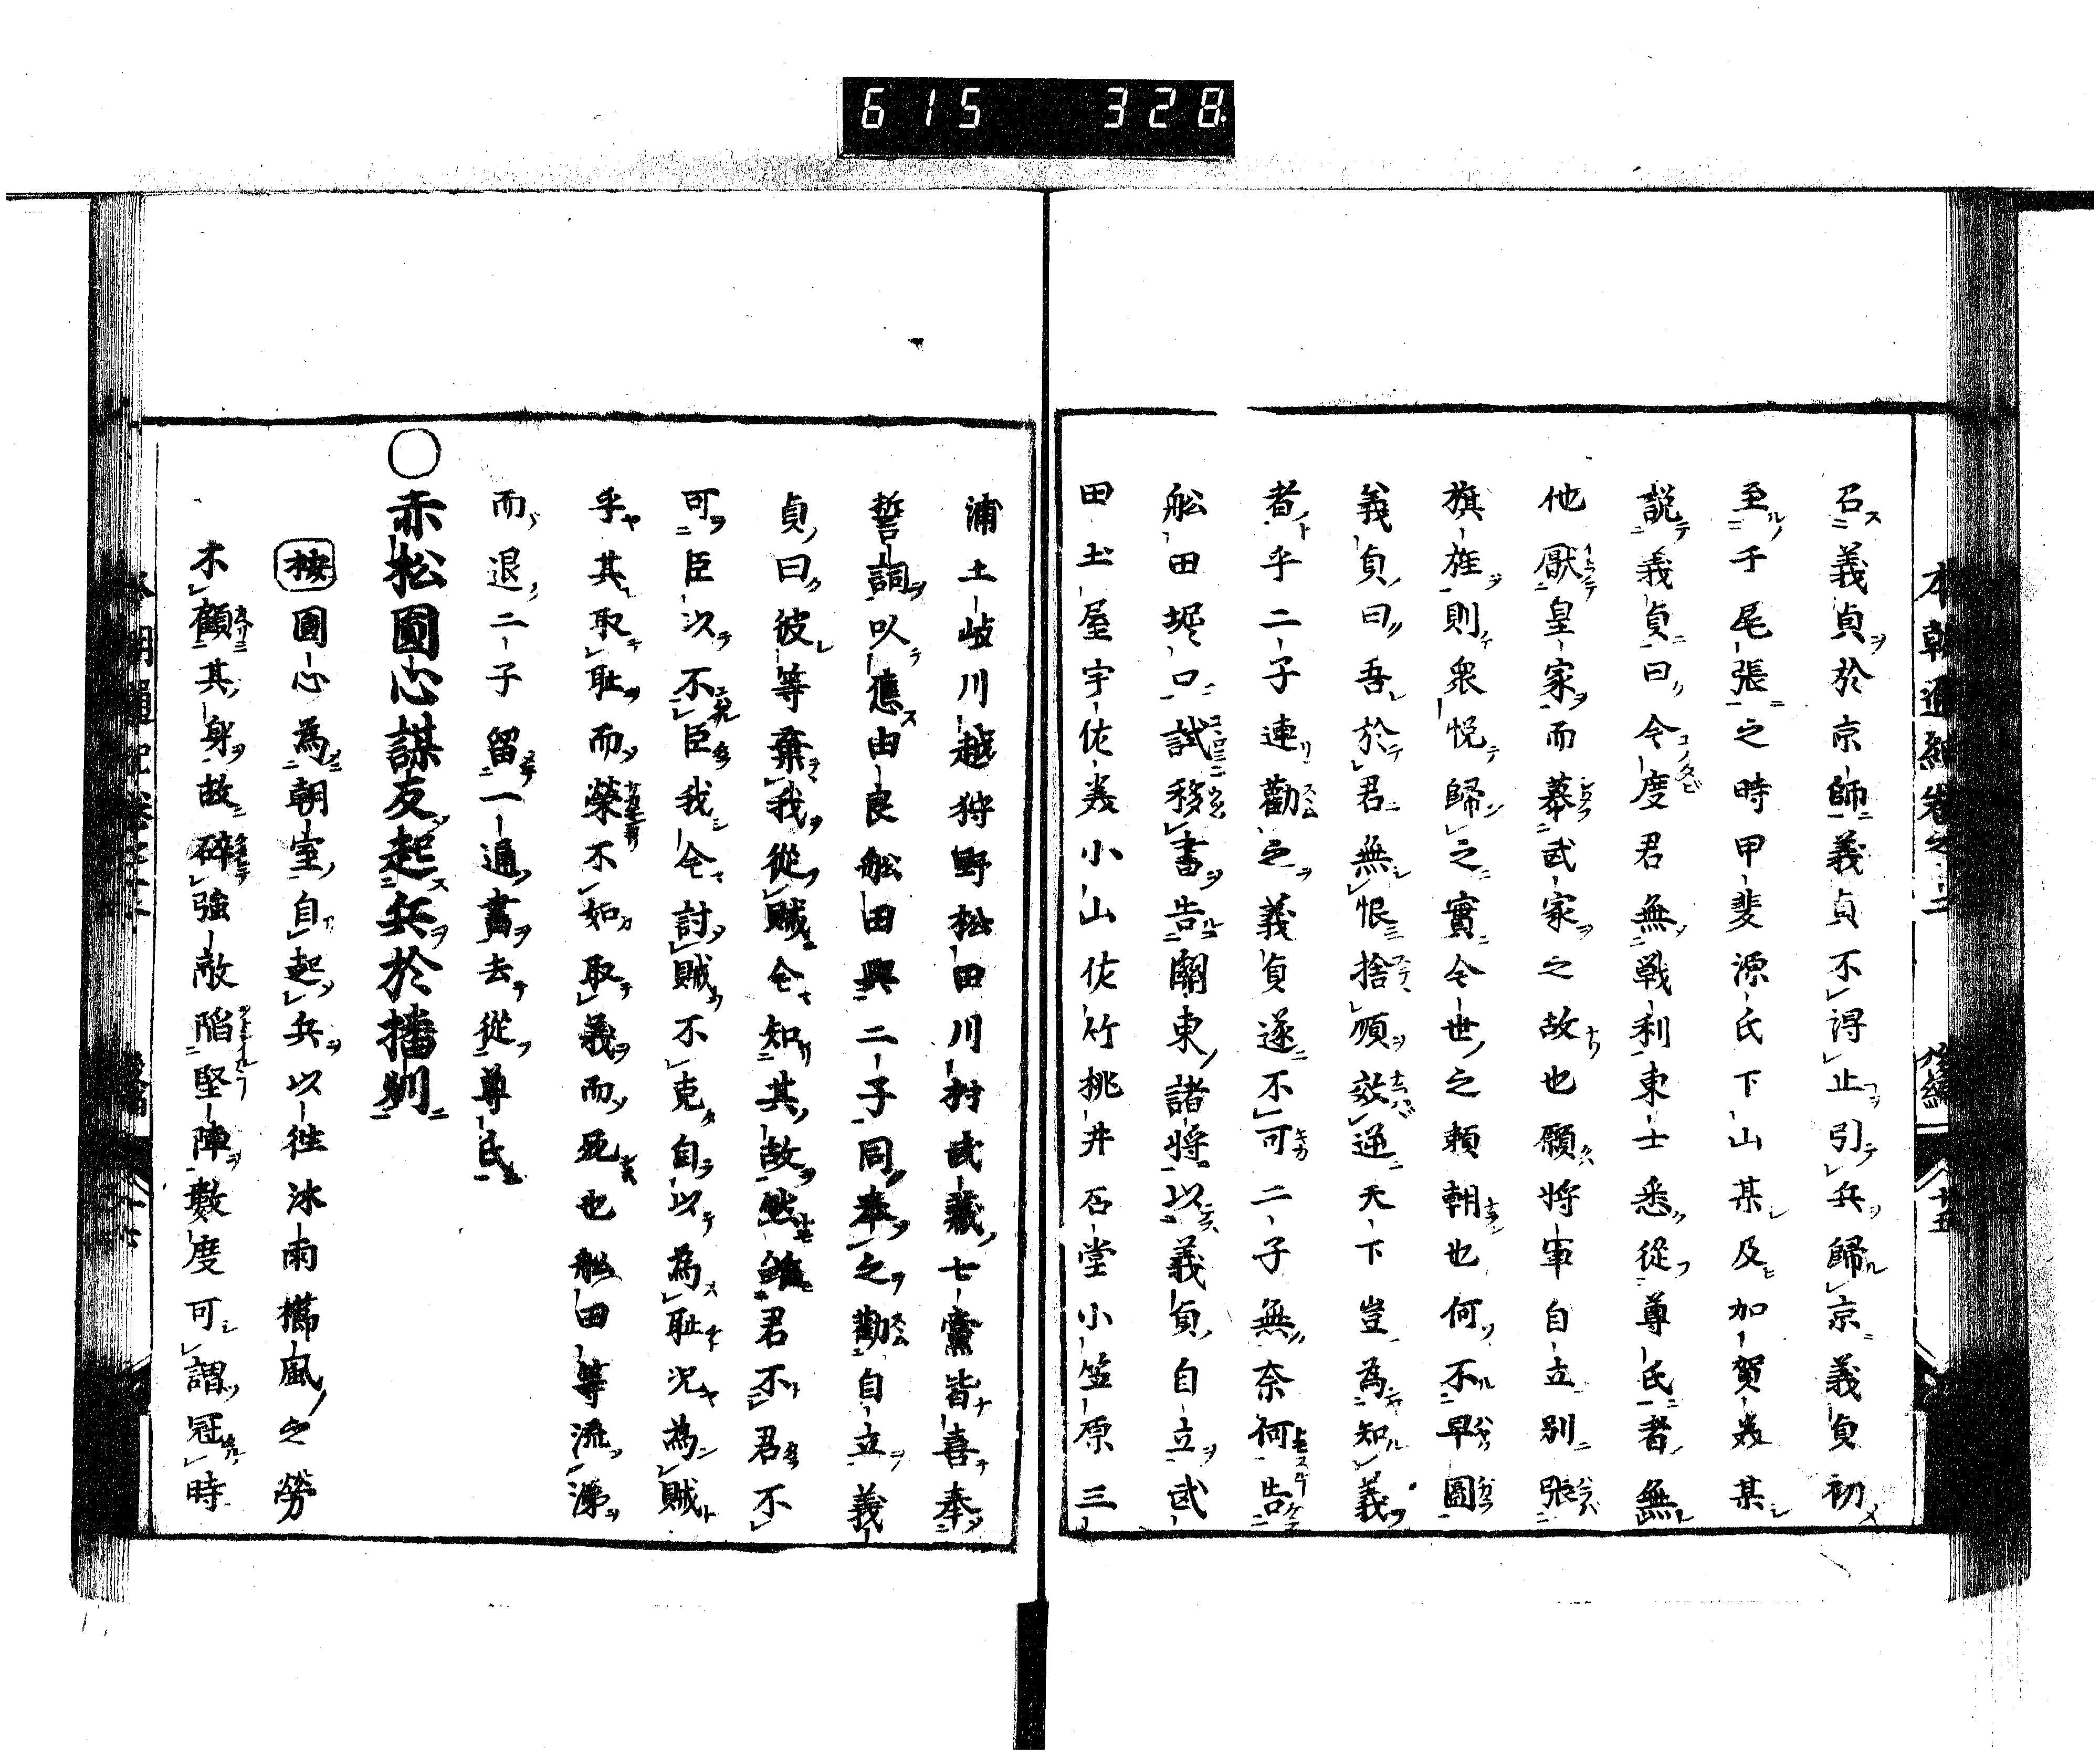 615 328
本朝通紀卷之二 後編 十五
召義貞於京師義貞不得止引兵歸京義貞初
至于尾張之時甲斐源氏下山某及加賀美某
説義貞曰今度君無戦利東士悉從尊氏者無
他厭皇家而慕武家之故也願將軍自立別張
旗旌則衆悦歸之實今世之頼朝也何不早圖
義貞曰吾於君無恨捨順效逆天下豈為知義
者乎二子連勸之義貞遂不可二子無奈何告
舩田堀口試移書告關東諸將以義貞自立武
田土屋宇佐美小山佐竹桃井石堂小笠原三
浦土岐川越狩野松田川村武藏七黨皆喜奉
誓詞以應由良舩田與二子同奉之勸自立義
貞曰彼等棄我從賊今知其故然雖君不君不
可臣以不臣我今討賊不克自以為耻况為賊
乎其取耻而榮不如取義而死也舩田等流涕
而退二子留一通書去從尊氏
○赤松圓心謀反起兵於播州
按圓心為朝室自起兵以徃沐雨櫛風之勞
不顧其身故碎強敵陷堅陣數度可謂冠時